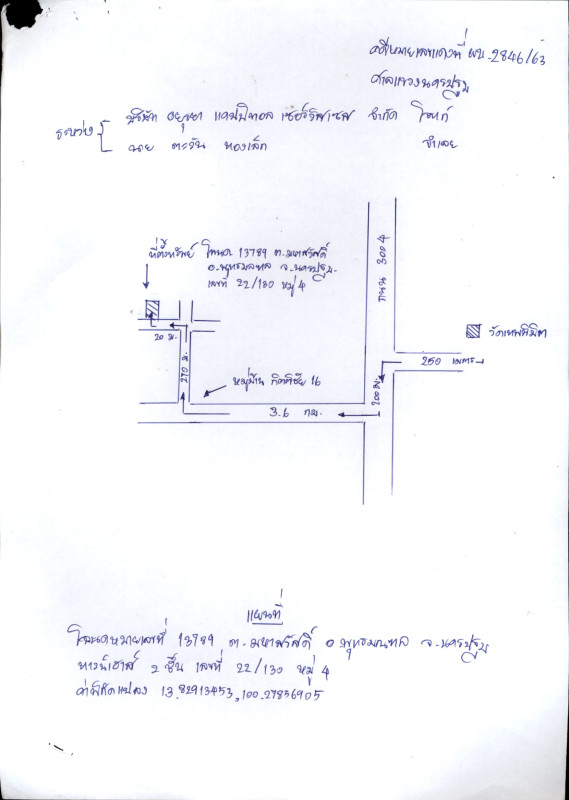 คดีหมายเลขแดงที่ ผบ.2846/63
ศาลแขวงนครปฐม
ระหว่าง
บริษัท อยุธยา แคปปิทอล เซอร์วิสเซส จำกัด โจทก์
นาย ตะวัน ทองเล็ก จำเลย
ที่ตั้งทรัพย์ โฉนด 13789 ต.มหาสวัสดิ์
อ.พุทธมณฑล จ.นครปฐม
เลขที่ 22/130 หมู่ 4
ถนน 3004
วัดเทพนิมิต
250 เมตร
200 ม.
20 ม.
270 ม.
หมู่บ้าน กิตตินิชัย 16
3.6 กม.
แผนที่
โฉนดหมายเลขที่ 13789 ต.มหาสวัสดิ์ อ.พุทธมณฑล จ.นครปฐม
ทาวน์เฮาส์ 2 ชั้น เลขที่ 22/130 หมู่ 4
ค่าพิกัดแปลง 13.82913453,100.27836905